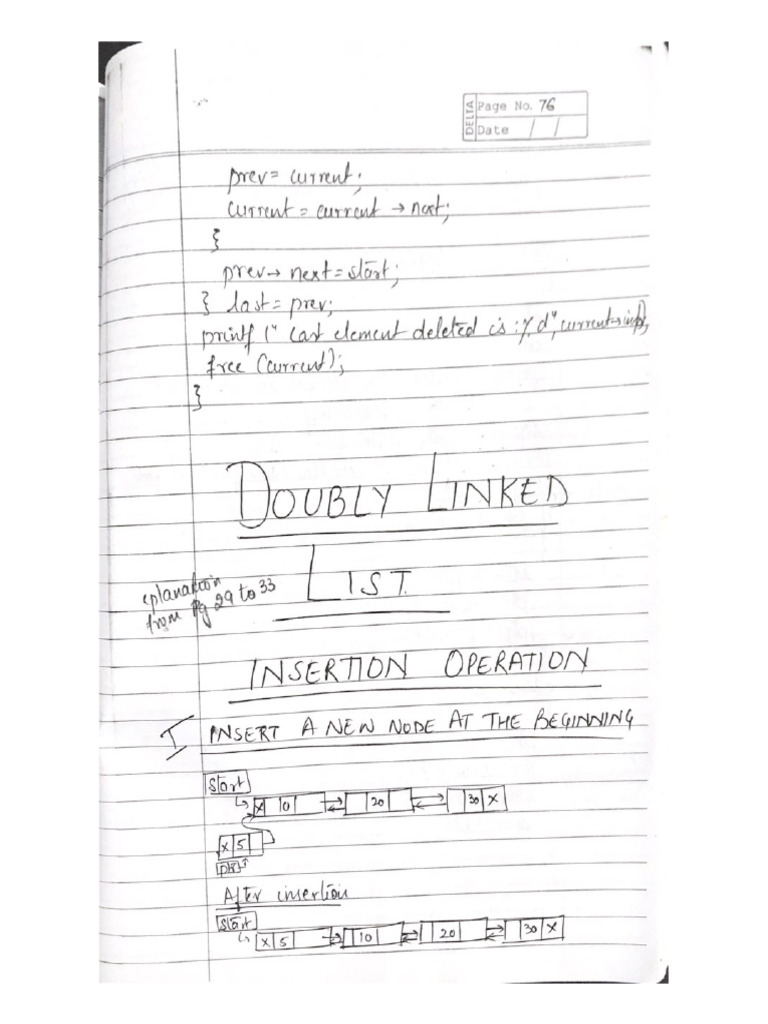 DELTA
Page No. 76
Date / /
prev = current;
current = current → next;
}
prev → next = start;
} last = prev;
printf (" Last element deleted is : %d", current→info);
free (current);
}
DOUBLY LINKED
LIST.
eplanation
from Pg 29 to 33
INSERTION OPERATION
I INSERT A NEW NODE AT THE BEGINNING
Start
x 10 20 30 x
x 5
ptr
After insertion
Start
x 5 10 20 30 x